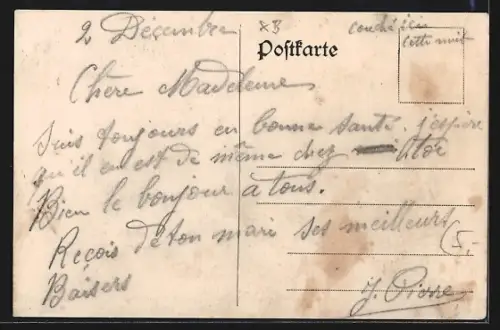 2 Décembre
XB
couché ici
cette nuit
Postkarte
Chère Madeleine
Suis toujours en bonne santé. j'espère
qu'il en est de même chez
Bien le bonjour à tous.
Reçois de ton mari ses meilleurs
Baisers
5,-
J. Pierre